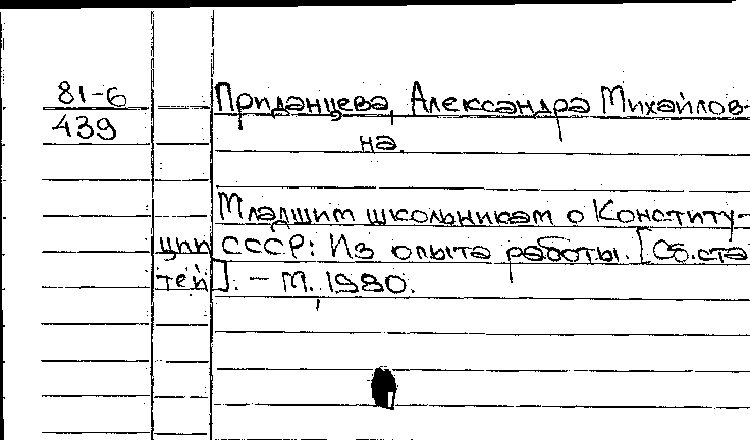 81-6
439
Приданцева, Александра Михайлов-
на.
Младшим школьникам о Конститу-
ции СССР: Из опыта работы. [Сб. ста
тей]. – М., 1980.